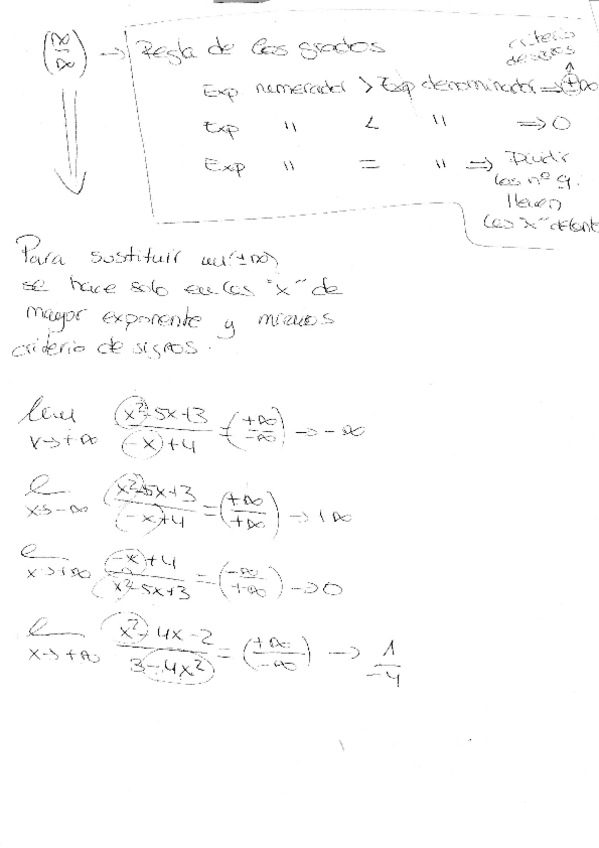 (∞/∞) → Regla de los grados
criterio
de signos
Exp numerador > Exp denominador ⇒ ±∞
Exp " < " ⇒ 0
Exp " = " ⇒ Dividir
los nº q.
lleven
las "x" delant
Para sustituir (±∞)
se hace solo en las "x" de
mayor exponente y miramos
criterio de signos.
lim x→+∞ (x²-5x+3)/(-x+4) = (+∞/-∞) → -∞
l x→-∞ (x²-5x+3)/(-x+4) = (+∞/+∞) → +∞
l x→+∞ (-x+4)/(x²-5x+3) = (-∞/+∞) → 0
l x→+∞ (x²-4x-2)/(3-4x²) = (+∞/-∞) → 1/-4